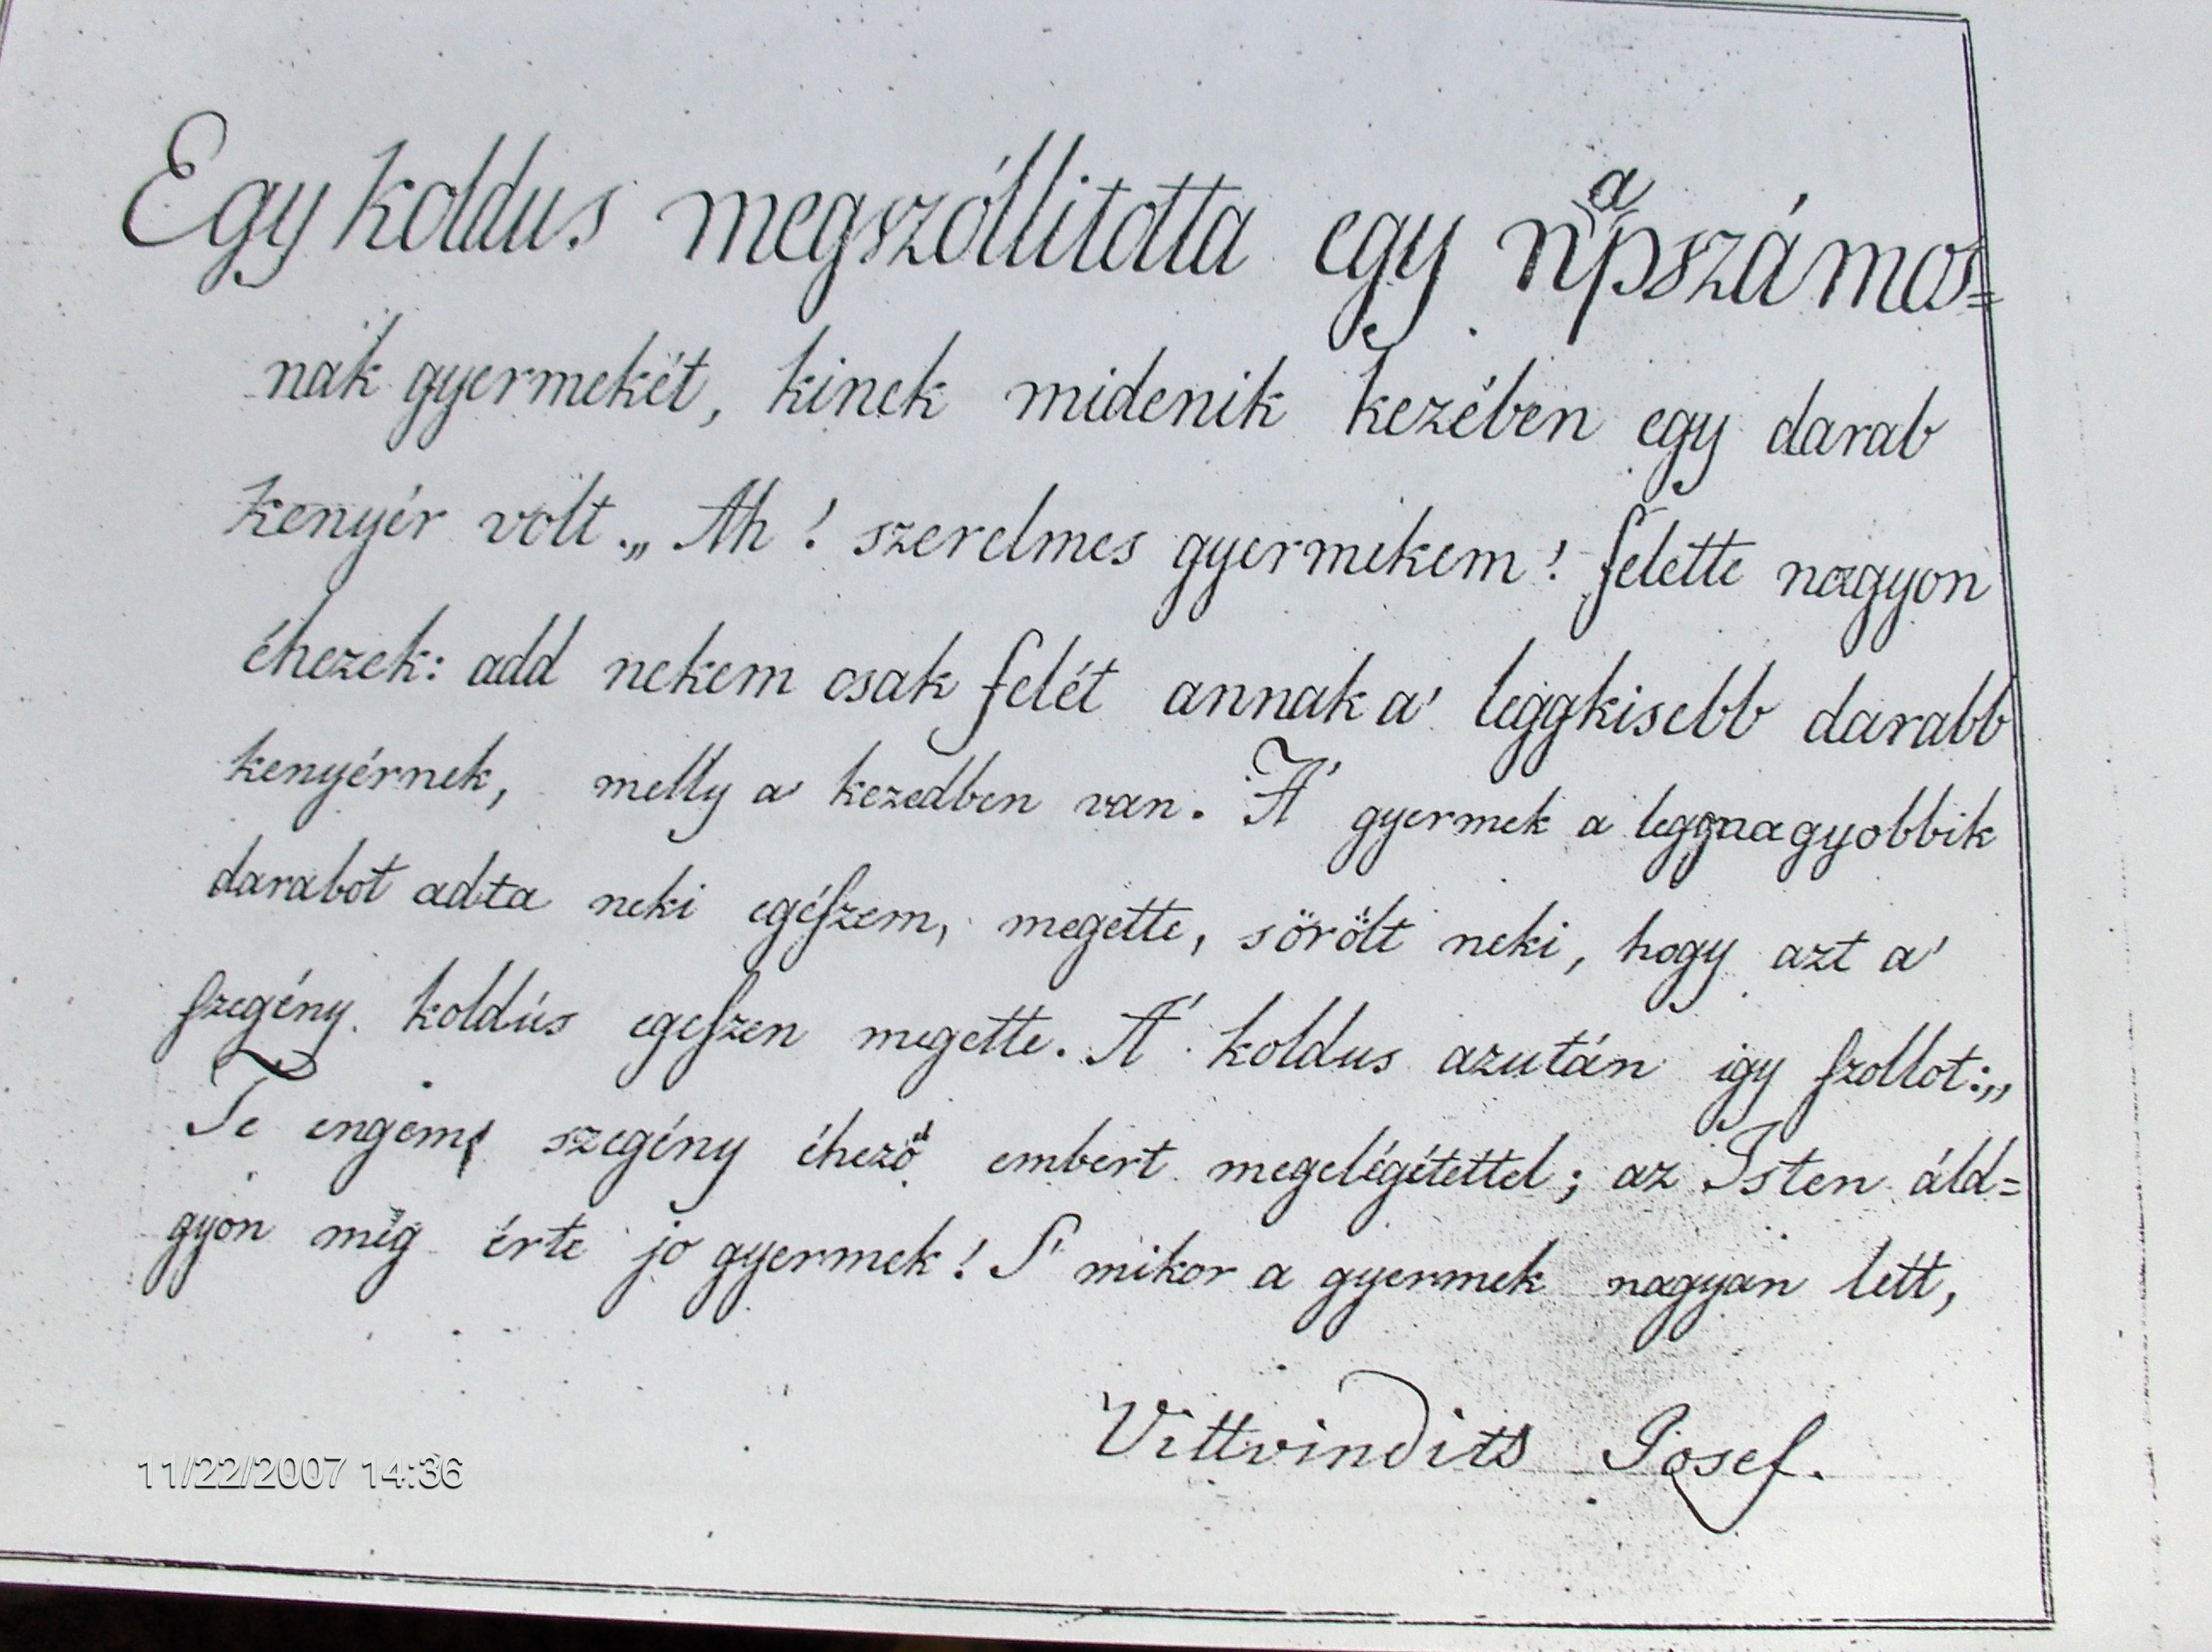 Egy koldus megszóllitotta egy napszámos=
nak gyermekét, kinek midenik kezében egy darab
kenyér volt. „Ah! szerelmes gyermikem! felette nagyon
éhezek: add nekem csak felét annak a' leggkisebb darabb
kenyérnek, melly a' kezedben van. A' gyermek a leggnagyobbik
darabot adta neki egészem, megette, sörölt neki, hogy azt a'
szegény koldús egeszen megette. A' koldus azután igy szollot:„
Te engem szegény éhező embert megelégétettel; az Isten áld=
gyon még érte jo gyermek! S' mikor a gyermek nagyan lett,
Vittvindits Josef.
11/22/2007 14:36